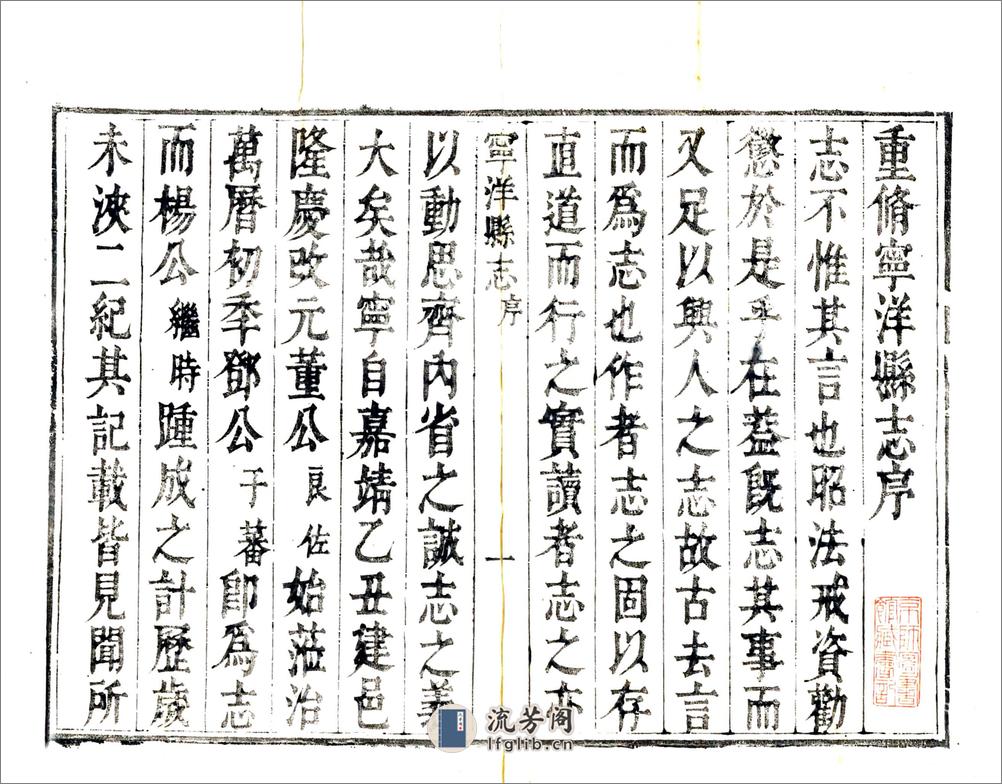 重脩寧洋縣志序
志不惟其言也昭法戒資勸
懲於是乎在葢旣志其事而
又足以興人之志故古去言
而爲志也作者志之固以存
直道而行之實讀者志之亦
寧洋縣志序
一
以動思齊內省之誠志之義
大矣哉寧自嘉靖乙丑建邑
隆慶改元董公良佐始蒞治
萬曆初季鄧公于蕃卽爲志
而楊公繼時踵成之計歷歲
未浹二紀其記載皆見聞所
流芳阁
lfglib.cn